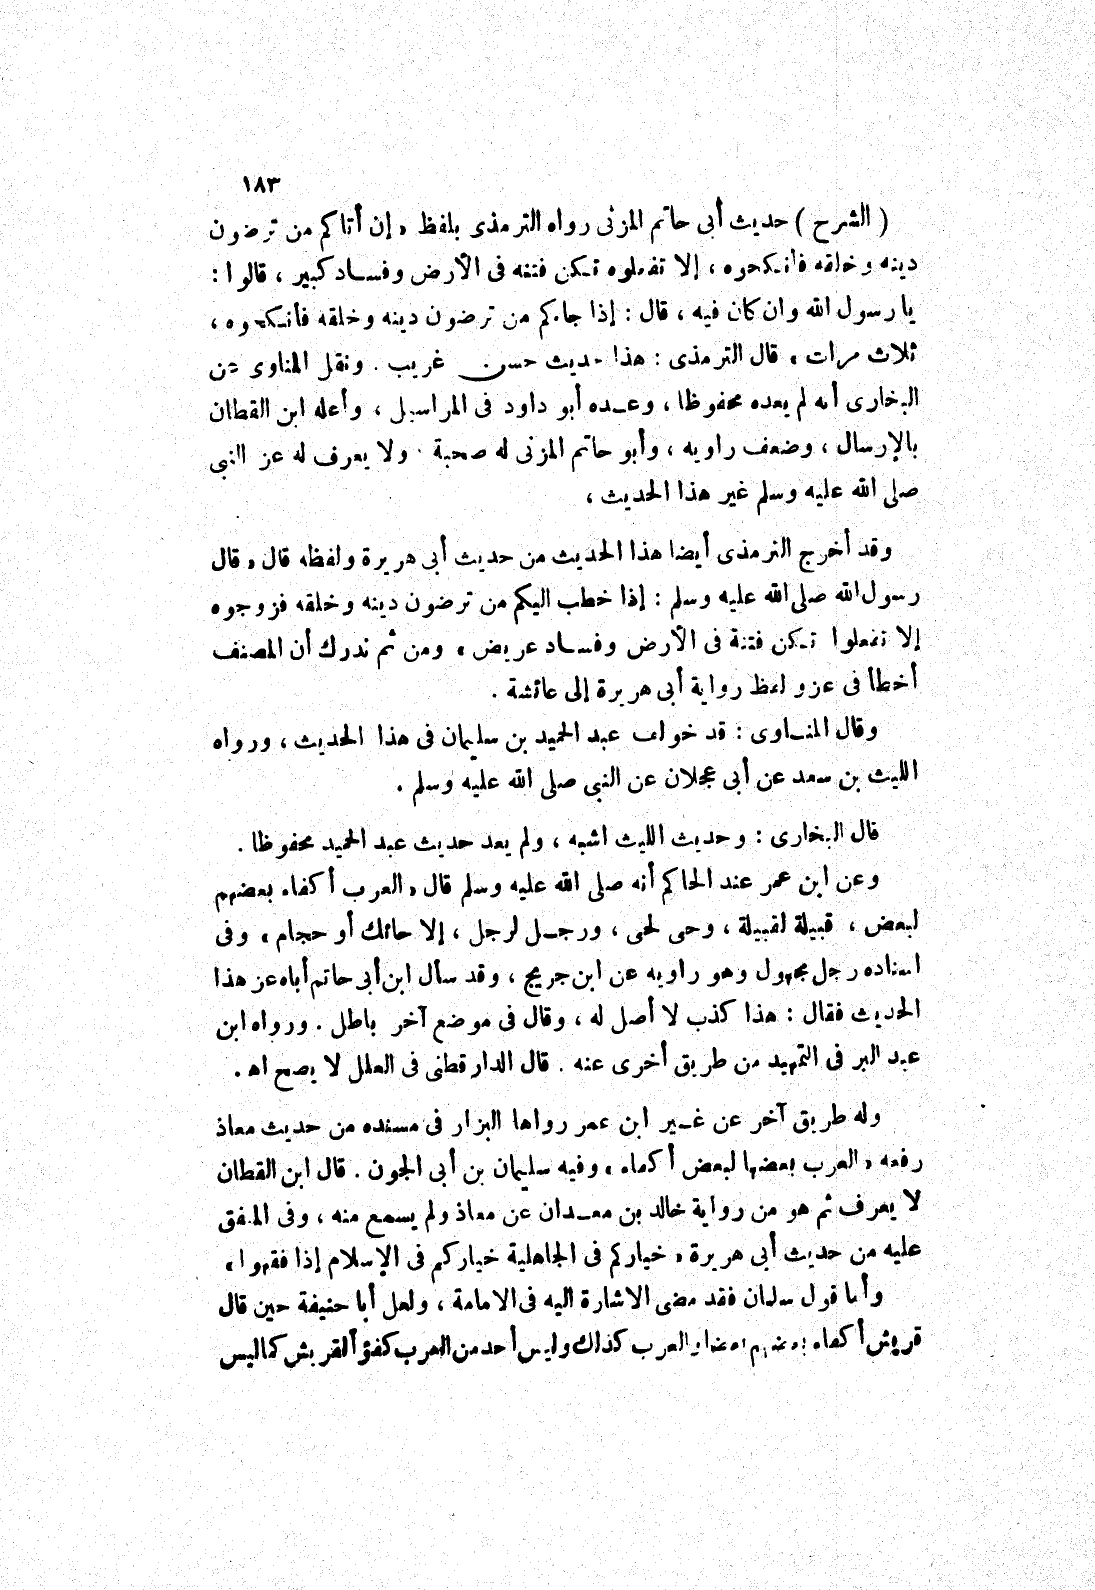 ١٨٣
( الشرح ) حديث أبى حاتم المزنى رواه الترمذى بلفظ « إن أتاكم من ترضون
دينه وخلقه فأنكحوه ، إلا تفعلوه تكن فتنه فى الأرض وفساد كبير ، قالوا :
يا رسول الله وان كان فيه ، قال : إذا جاءكم من ترضون دينه وخلقه فأنكحوه ،
ثلاث مرات » قال الترمذى : هذا حديث حسن غريب . ونقل المناوى عن
البخارى أنه لم يعده محفوظا ، وعده أبو داود فى المراسيل ، وأعله ابن القطان
بالإرسال ، وضعف راويه ، وأبو حاتم المزنى له صحبة . ولا يعرف له عن النبى
صلى الله عليه وسلم غير هذا الحديث ،
وقد أخرج الترمذى أيضا هذا الحديث من حديث أبى هريرة ولفظه قال « قال
رسول الله صلى الله عليه وسلم : إذا خطب اليكم من ترضون دينه وخلقه فزوجوه
إلا تفعلوا تكن فتنة فى الأرض وفساد عريض » ومن ثم ندرك أن المصنف
أخطأ فى عزو لفظ رواية أبى هريرة إلى عائشة .
وقال المناوى : قد خولف عبد الحميد بن سليمان فى هذا الحديث ، ورواه
الليث بن سعد عن أبى عجلان عن النبى صلى الله عليه وسلم .
قال البخارى : وحديث الليث اشبه ، ولم يعد حديث عبد الحميد محفوظا .
وعن ابن عمر عند الحاكم أنه صلى الله عليه وسلم قال « العرب أكفاء بعضهم
لبعض ، قبيلة لقبيلة ، وحى لحى ، ورجل لرجل ، إلا حائك أو حجام » وفى
اسناده رجل مجهول وهو راويه عن ابن جريج ، وقد سأل ابن أبى حاتم أباه عن هذا
الحديث فقال : هذا كذب لا أصل له ، وقال فى موضع آخر باطل . ورواه ابن
عبد البر فى التمهيد من طريق أخرى عنه . قال الدارقطنى فى العلل لا يصح اهـ .
وله طريق آخر عن غير ابن عمر رواها البزار فى مسنده من حديث معاذ
رفعه « العرب بعضها لبعض أكفاء » وفيه سليمان بن أبى الجون . قال ابن القطان
لا يعرف ثم هو من رواية خالد بن معدان عن معاذ ولم يسمع منه ، وفى المتفق
عليه من حديث أبى هريرة « خياركم فى الجاهلية خياركم فى الإسلام إذا فقهوا »
وأما قول سلمان فقد مضى الاشارة اليه فى الامامة ، ولعل أبا حنيفة حين قال
قريش أكفاء بعضهم لبعض والعرب كذلك وليس أحد من العرب كفؤ القريش كما ليس